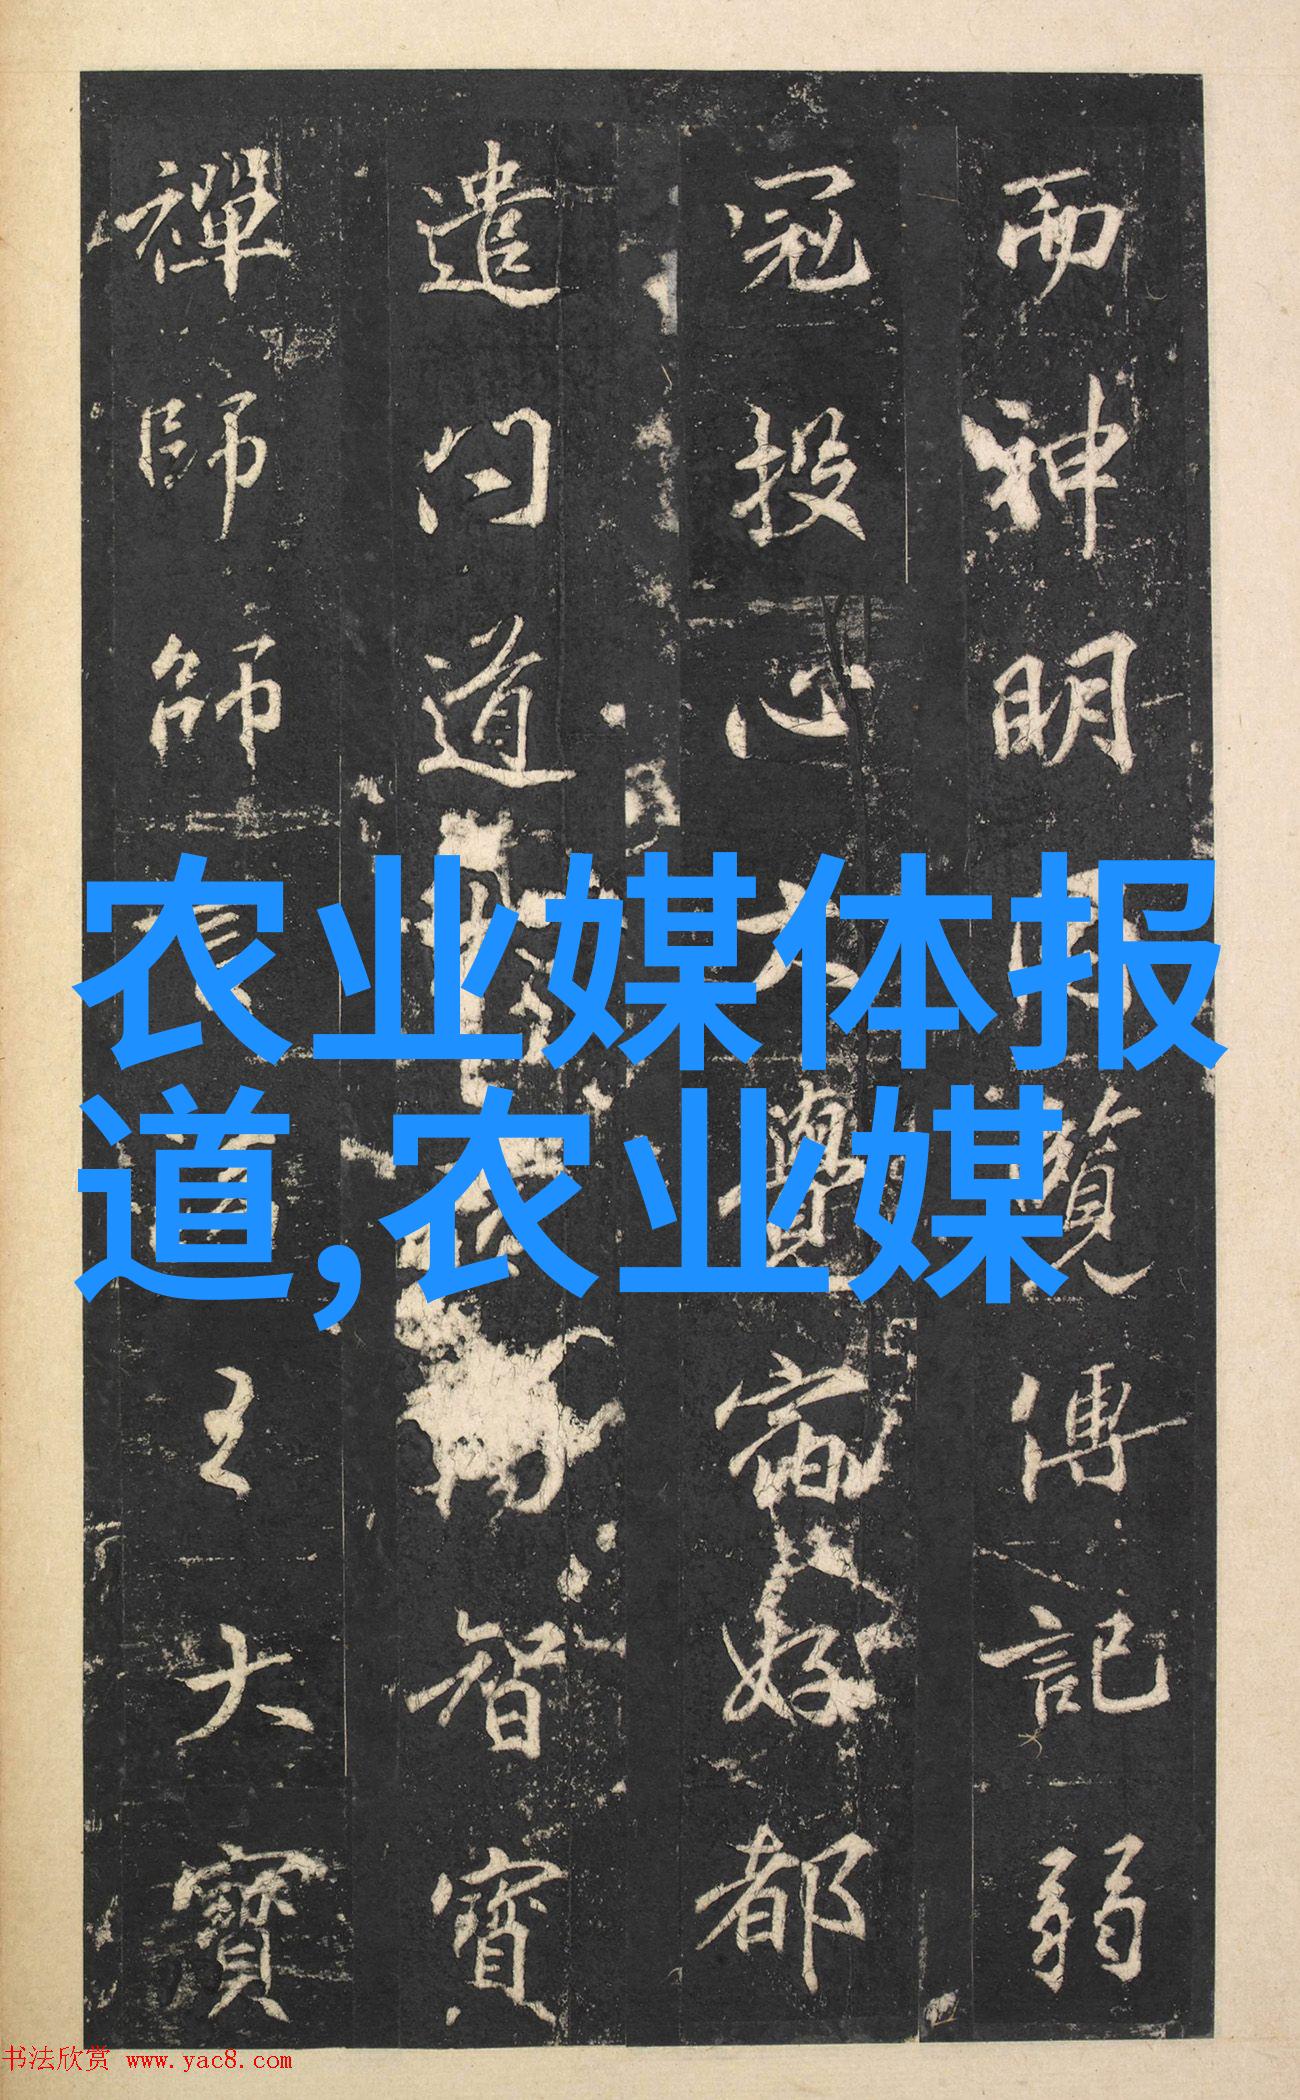 而神明覽傳記弱
冠投心大覺宿好都
遣問道智寶
禪師師大寶
农业媒体报
道,农业媒
书法欣赏 www.yac8.com